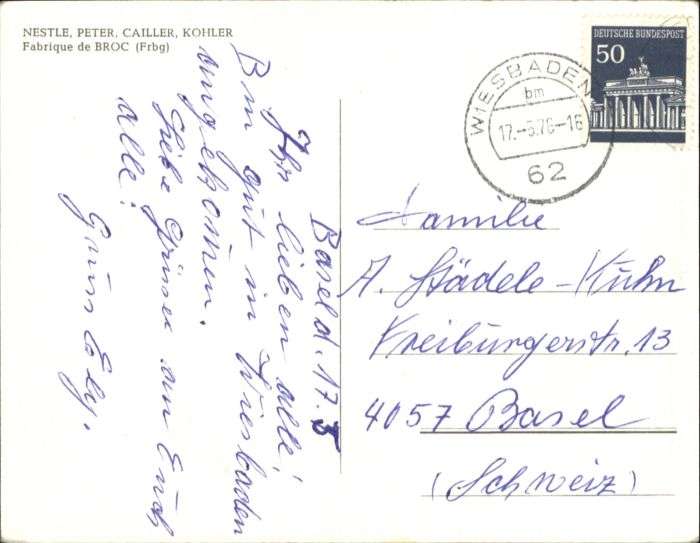 NESTLE, PETER, CAILLER, KOHLER
Fabrique de BROC (Frbg)
DEUTSCHE BUNDESPOST
50
WIESBADEN
bm
17.-5.76-16
62
Basel d. 17.5
Ihr lieben alle!
Bin gut in Wiesbaden
angekommen.
Liebe Grüsse an Euch
alle!
Familie
A. Städele-Kuhn
Freiburgerstr. 13
4057 Basel
(Schweiz)